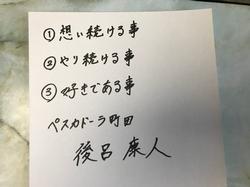 ①想い続ける事
②やり続ける事
③好きである事
ペスカドーラ町田
後呂康人